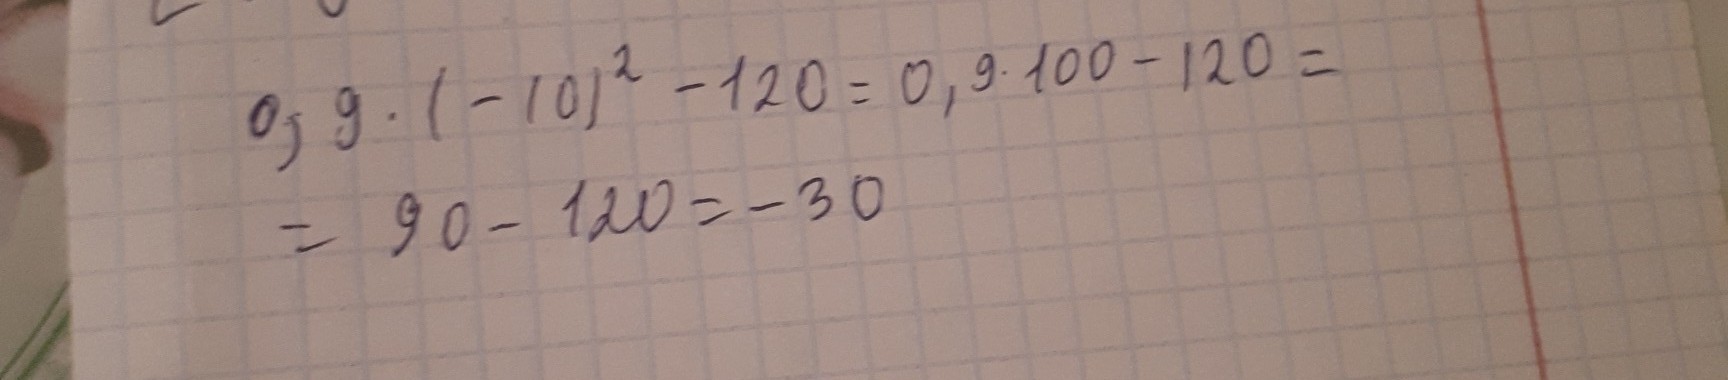 0,9·(-10)² -120=0,9·100-120=
= 90-120=-30